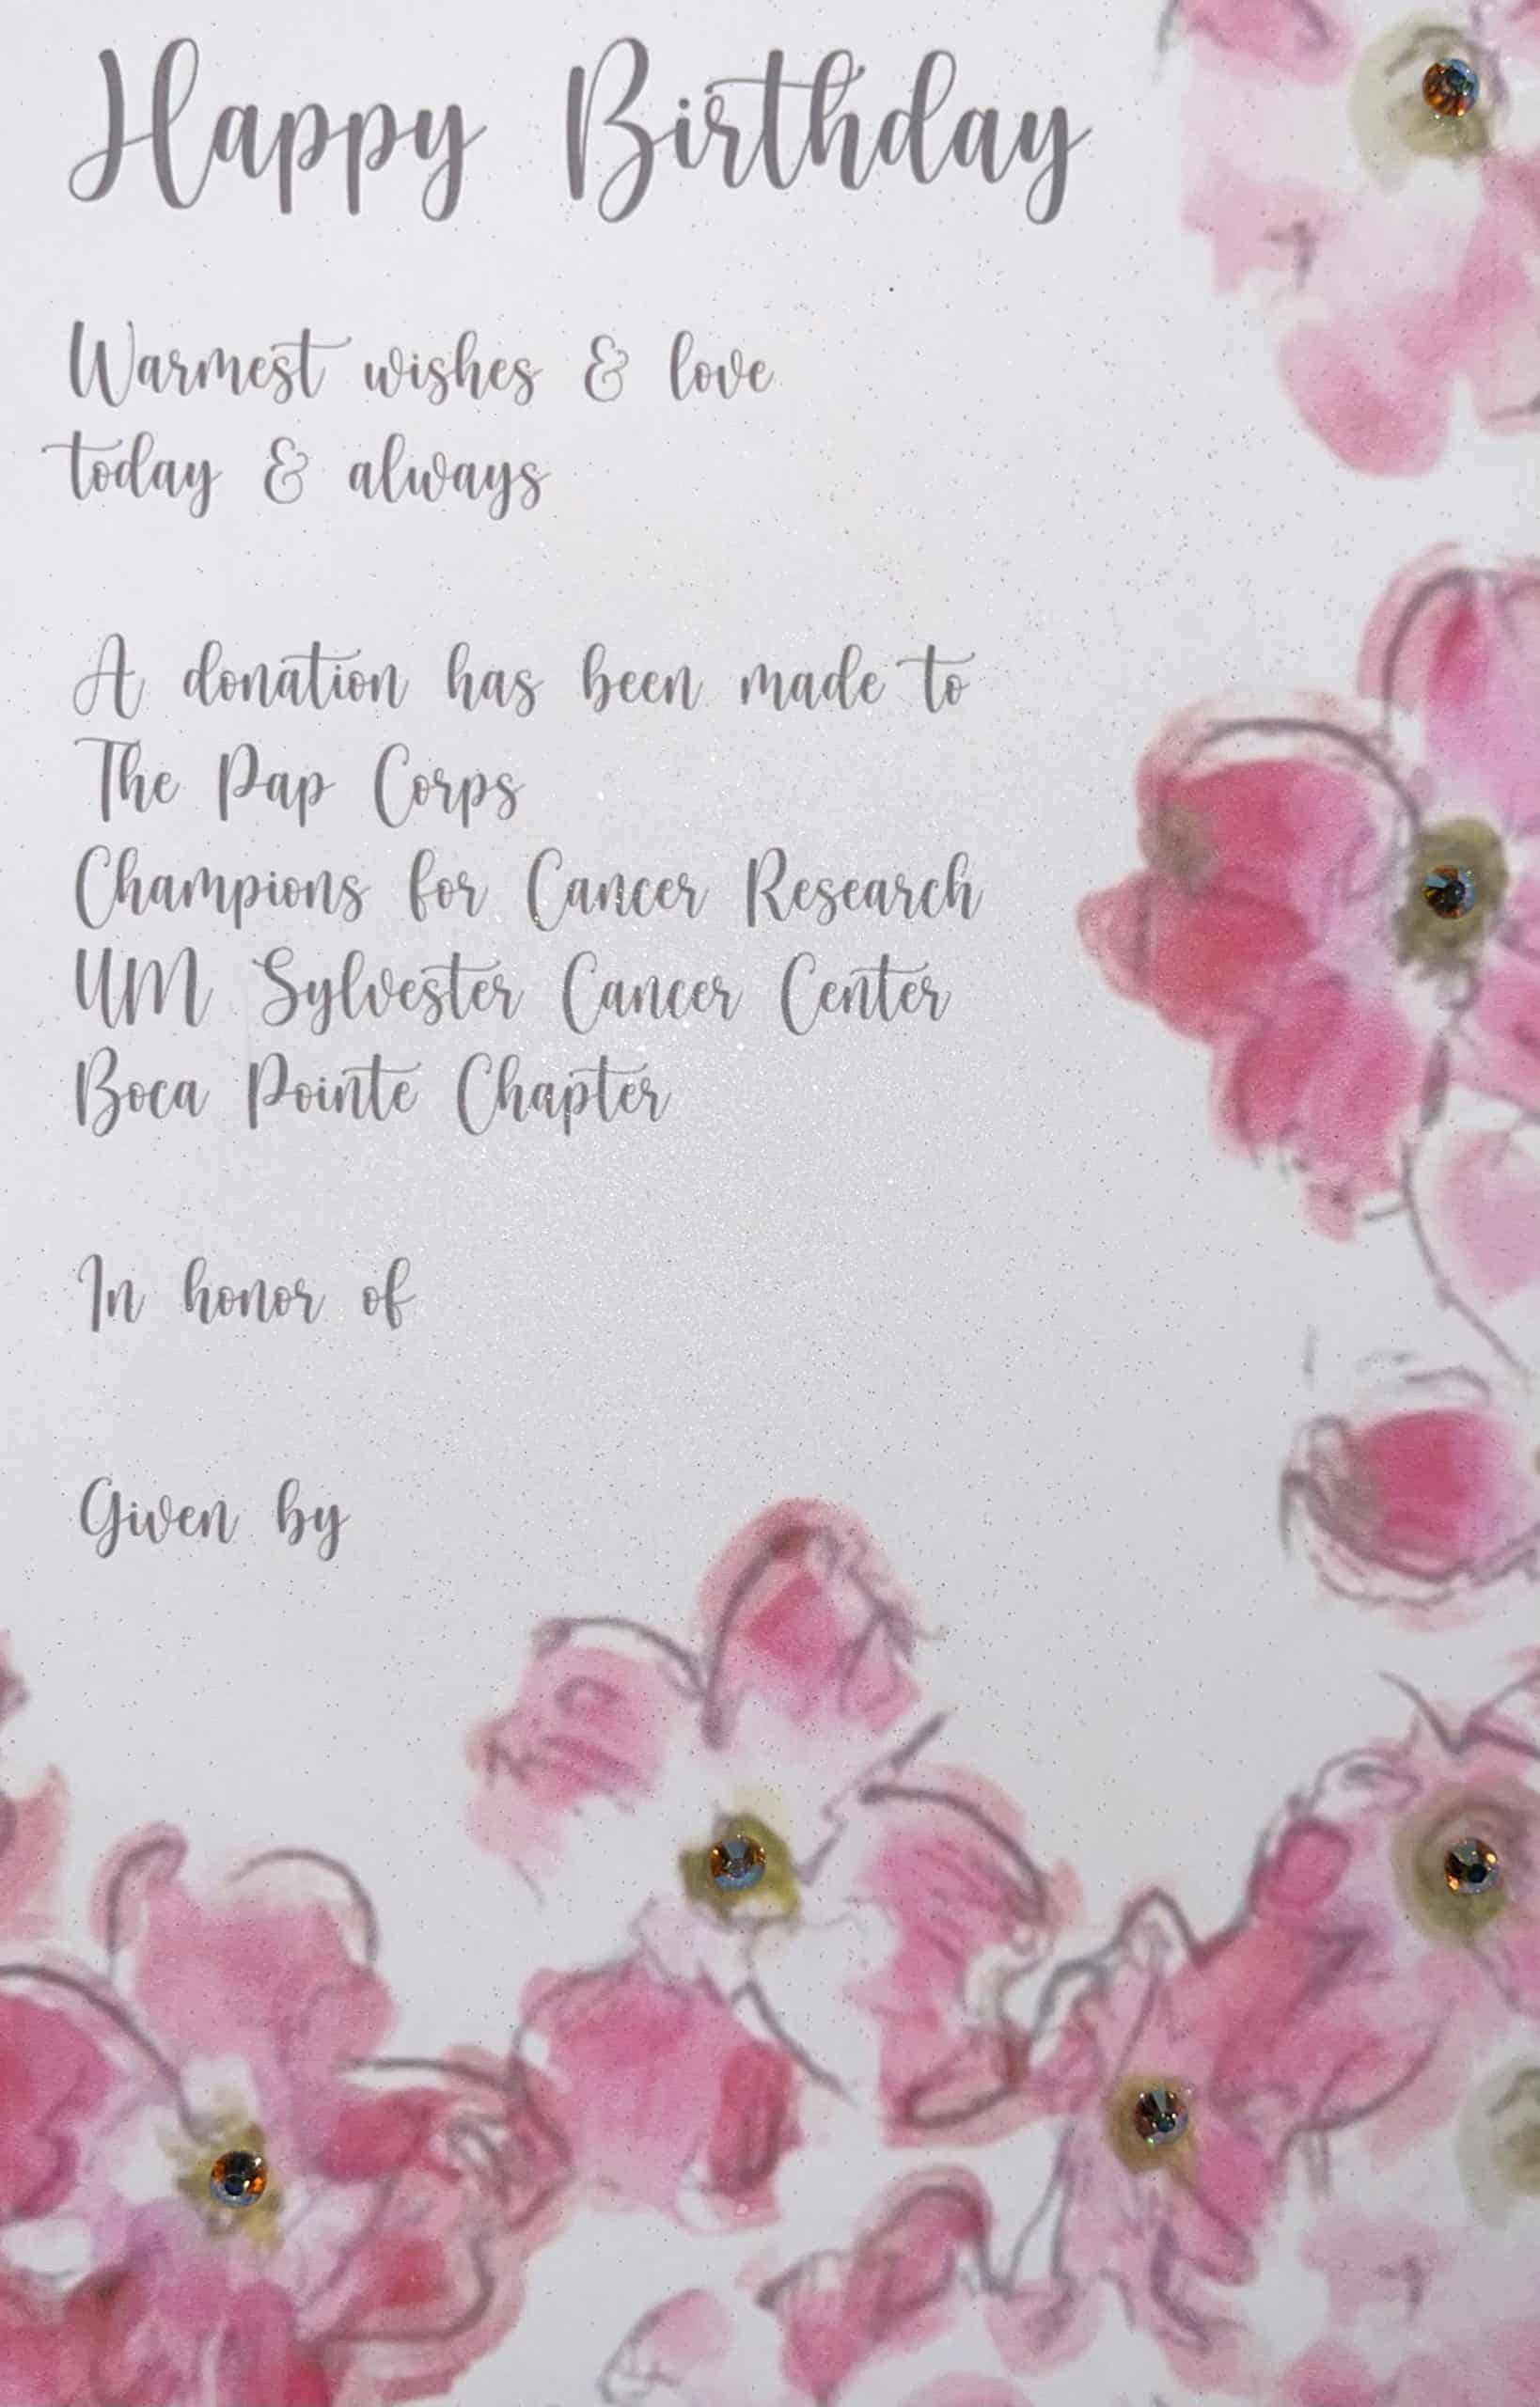 Happy Birthday
Warmest wishes & love
today & always
A donation has been made to
The Pap Corps
Champions for Cancer Research
UM Sylvester Cancer Center
Boca Pointe Chapter
In honor of
Given by